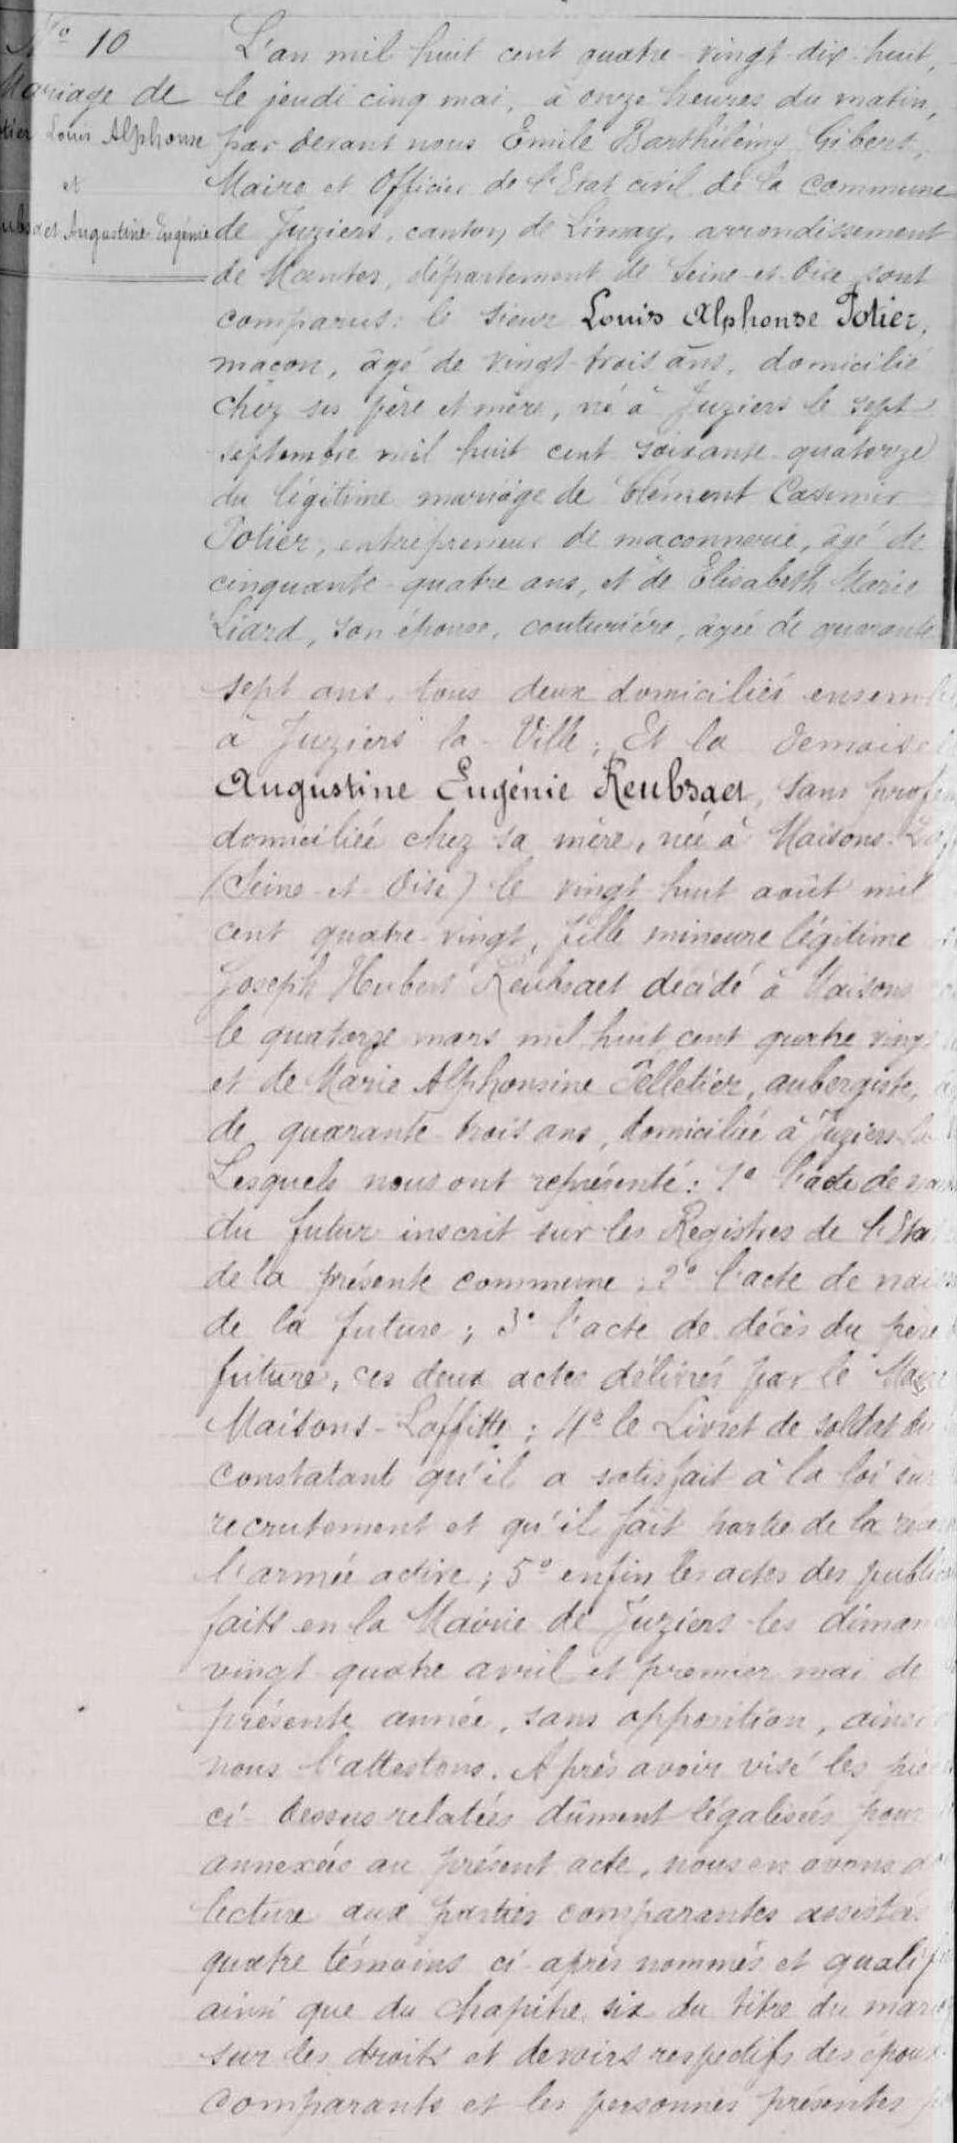 N° 10
Mariage de
Potier Louis Alphonse
et
Reubsaet Augustine Eugénie
L'an mil huit cent quatre-vingt-dix-huit,
le jeudi cinq mai, à onze heures du matin,
par devant nous Emile Barthélémy Gibert,
Maire et Officier de l'Etat civil de la commune
de Juziers, canton de Limay, arrondissement
de Mantes, département de Seine-et-Oise, sont
comparus: le sieur Louis Alphonse Potier,
maçon, âgé de vingt-trois ans, domicilié
chez ses père et mère, né à Juziers le sept
septembre mil huit cent soixante-quatorze
du légitime mariage de Clément Casimir
Potier, entrepreneur de maconnerie, âgé de
cinquante-quatre ans, et de Elisabeth Marie
Liard, son épouse, couturière, âgée de quarante
sept ans, tous deux domiciliés ensemble
à Juziers la-Ville; Et la demoise
Augustine Eugénie Reubsaet, sans profes
domiciliée chez sa mère, née à Maisons-La
(Seine-et-Oise) le vingt-huit août mil
cent quatre-vingt, fille mineure légitime
Joseph Hubert Reubsaet décédé à Maisons
le quatorze mars mil huit cent quatre vingt
et de Marie Alphonsine Pelletier, aubergiste,
de quarante-trois ans, domiciliée à Juziers-la
Lesquels nous ont représenté: 1° l'acte de nais
du futur inscrit sur les Registres de l'Eta
de la présente commune; 2° l'acte de naiss
de la future; 3° l'acte de décès du père
future, ces deux actes délivrés par le Maire
Maisons-Laffitte; 4° le Livret de soldat du
constatant qu'il a satisfait à la loi sur
recrutement et qu'il fait partie de la rése
l'armée active; 5° enfin les actes des public
faits en la Mairie de Juziers les diman
vingt-quatre avril et premier mai de
présente année, sans opposition, ainsi
nous l'attestons. Après avoir visé les piè
ci-dessus relatées dûment légalisées pour
annexées au présent acte, nous en avons do
lecture aux parties comparantes assistée
quatre témoins ci-après nommés et qualifi
ainsi que du chapitre six du titre du maria
sur les droits et devoirs respectifs des époux.
comparants et les personnes présentes p